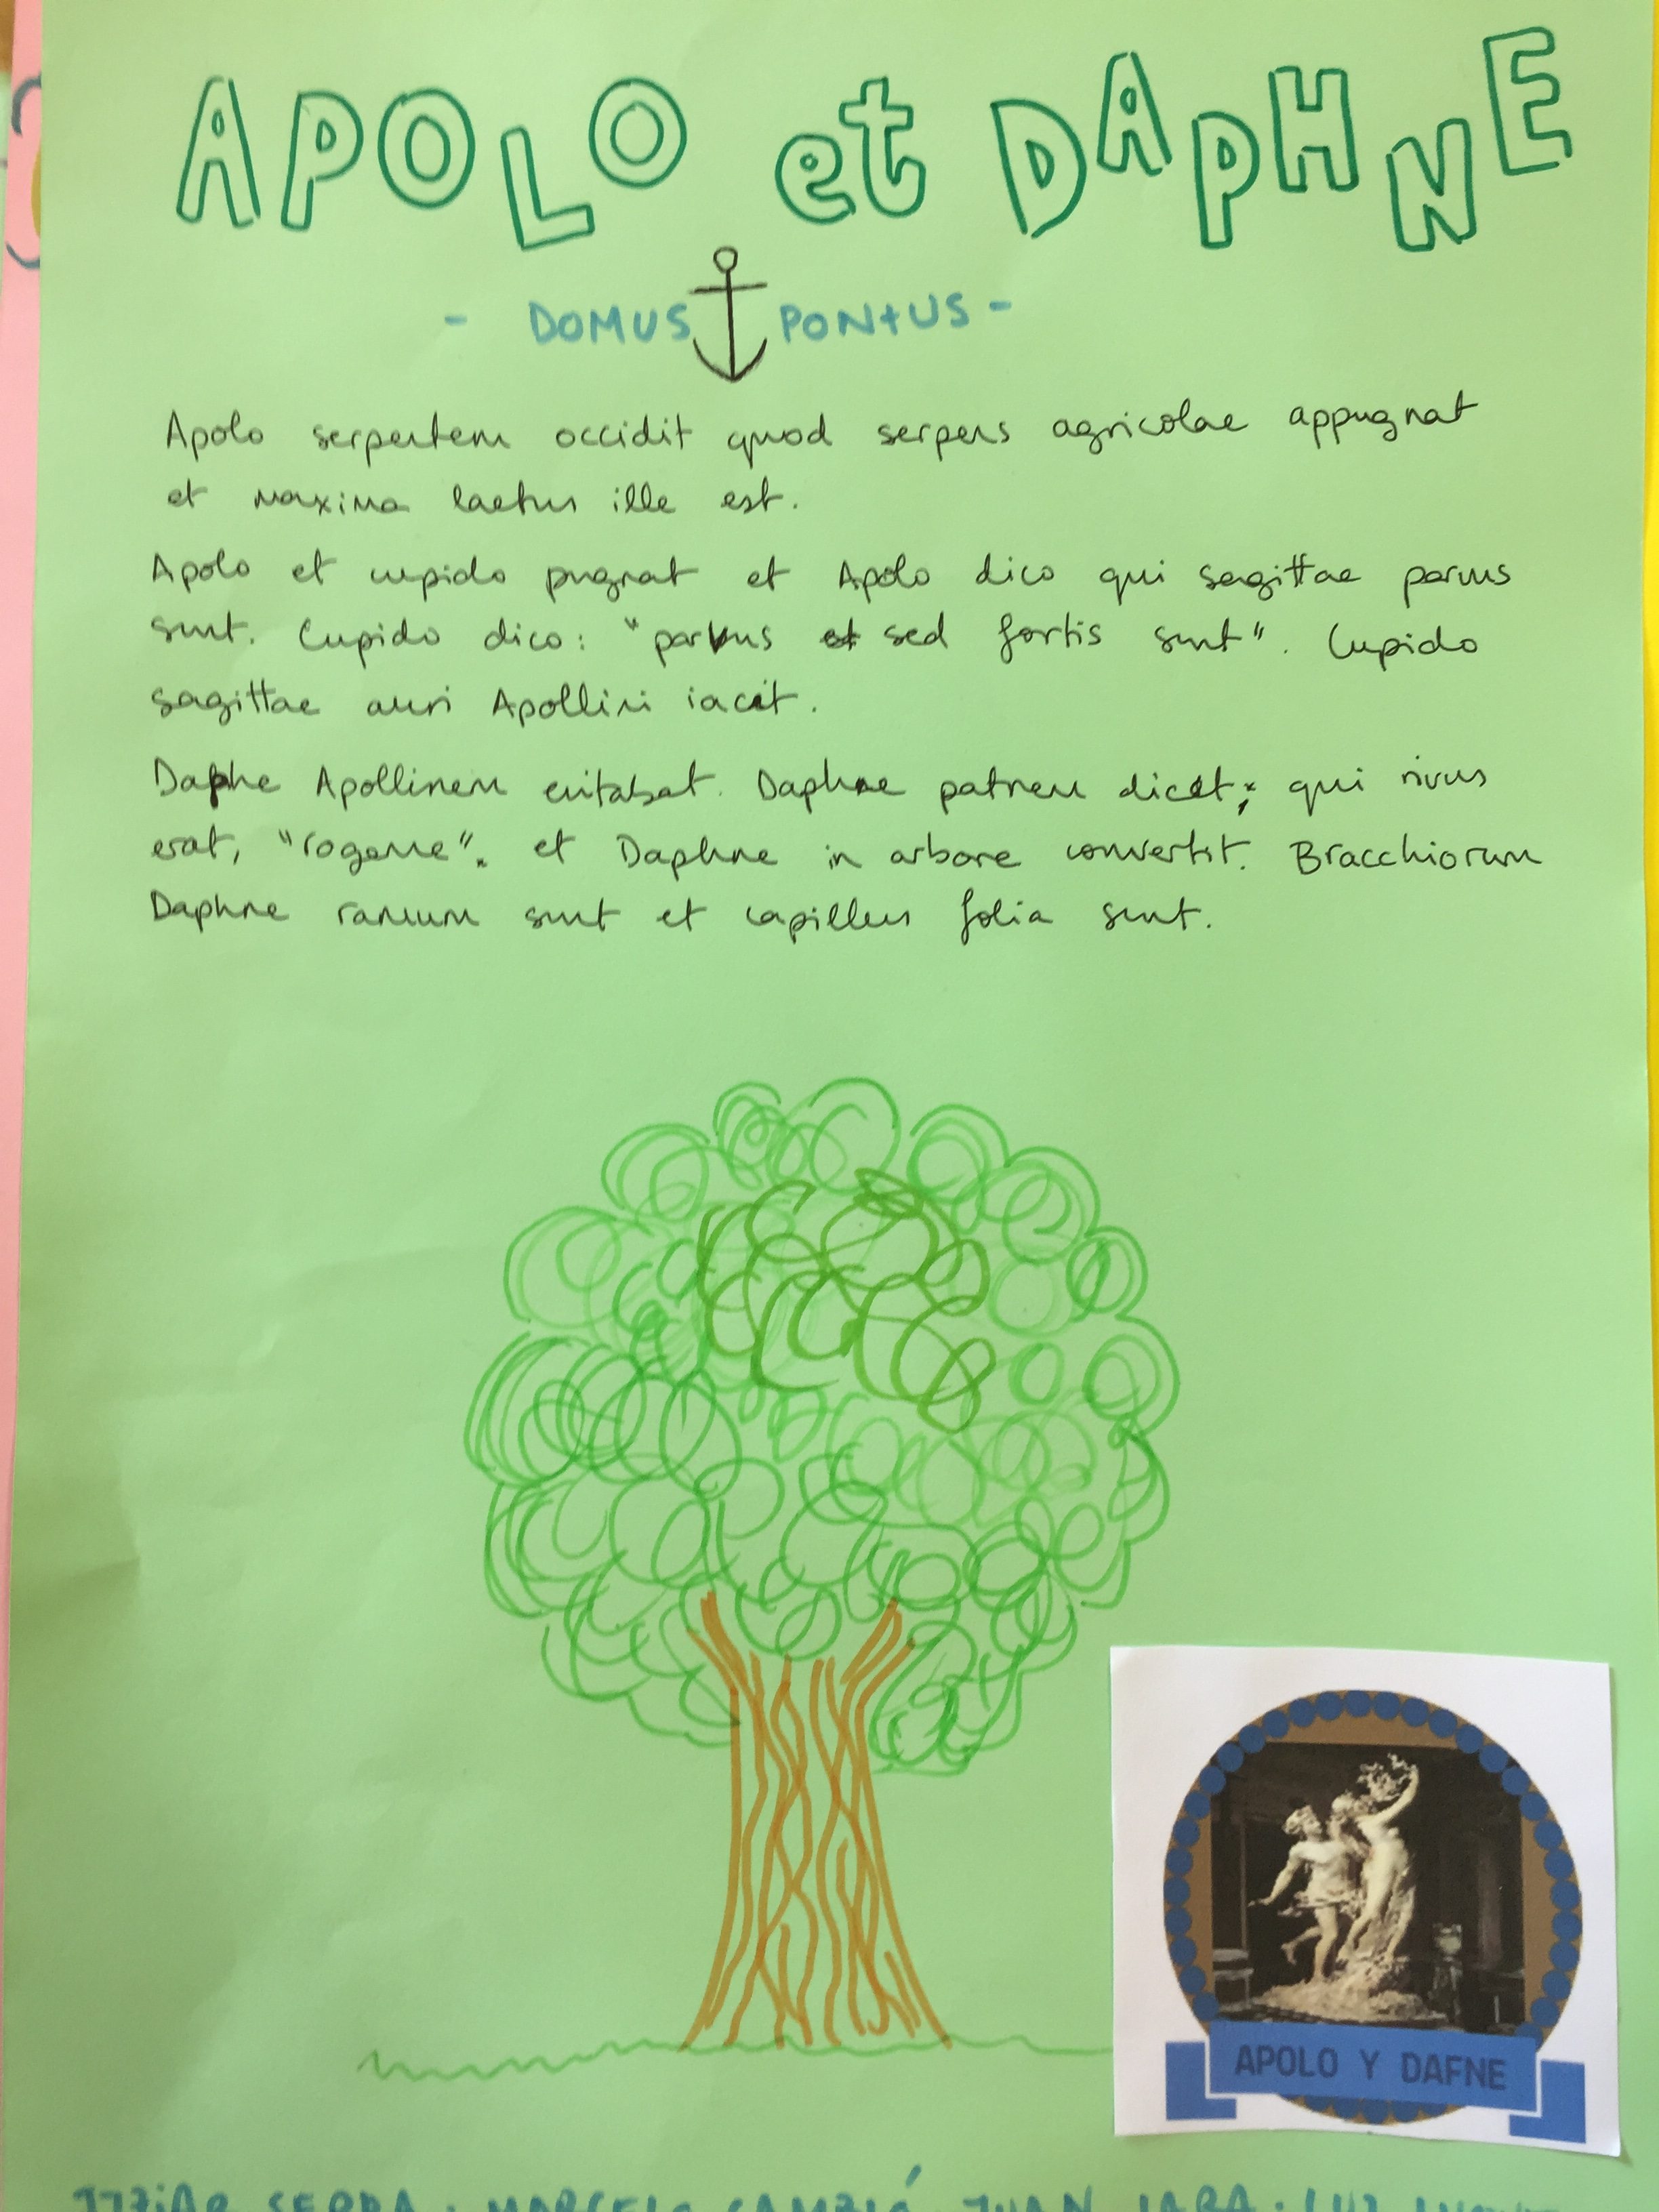 APOLO et DAPHNE
- DOMUS PONTUS -
Apolo serpentem occidit quod serpens agricolae appugnat
et maxima laetus ille est.
Apolo et cupido pugnat et Apolo dico qui sagittae parvus
sunt. Cupido dico: "parvus sed fortis sunt". Cupido
sagittae auri Apollini iacit.
Daphe Apollinem evitabat. Daphne patrem dicit; qui rivus
erat, et Daphne in arbore convertit. Bracchiorum
Daphne ramum sunt et capillus folia sunt.
APOLO Y DAFNE
SERRA · MARCELO JUAN JARA · LUZ